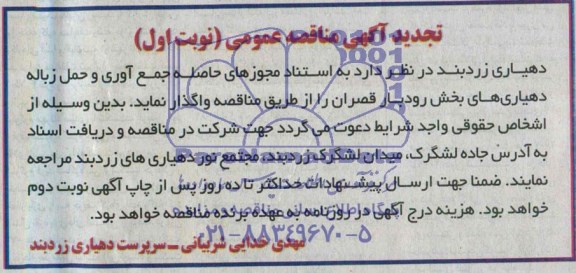 تجدید آگهی مناقصه عمومی (نوبت اول)
دهیاری زردبند در نظر دارد به استناد مجوزهای حاصله جمع آوری و حمل زباله
دهیاری‌های بخش رودبار قصران را از طریق مناقصه واگذار نماید. بدین وسیله از
اشخاص حقوقی واجد شرایط دعوت می گردد جهت شرکت در مناقصه و دریافت اسناد
به آدرس جاده لشگرک، میدان لشگرک زردبند، مجتمع نور دهیاری های زردبند مراجعه
نمایند. ضمنا جهت ارسال پیشنهادات حداکثر تا ده روز پس از چاپ آگهی نوبت دوم
خواهد بود. هزینه درج آگهی در روزنامه به عهده برنده مناقصه خواهد بود.
مهدی خدایی شربیانی ـ سرپرست دهیاری زردبند
۰۲۱-۸۸۳۴۹۶۷۰-۵